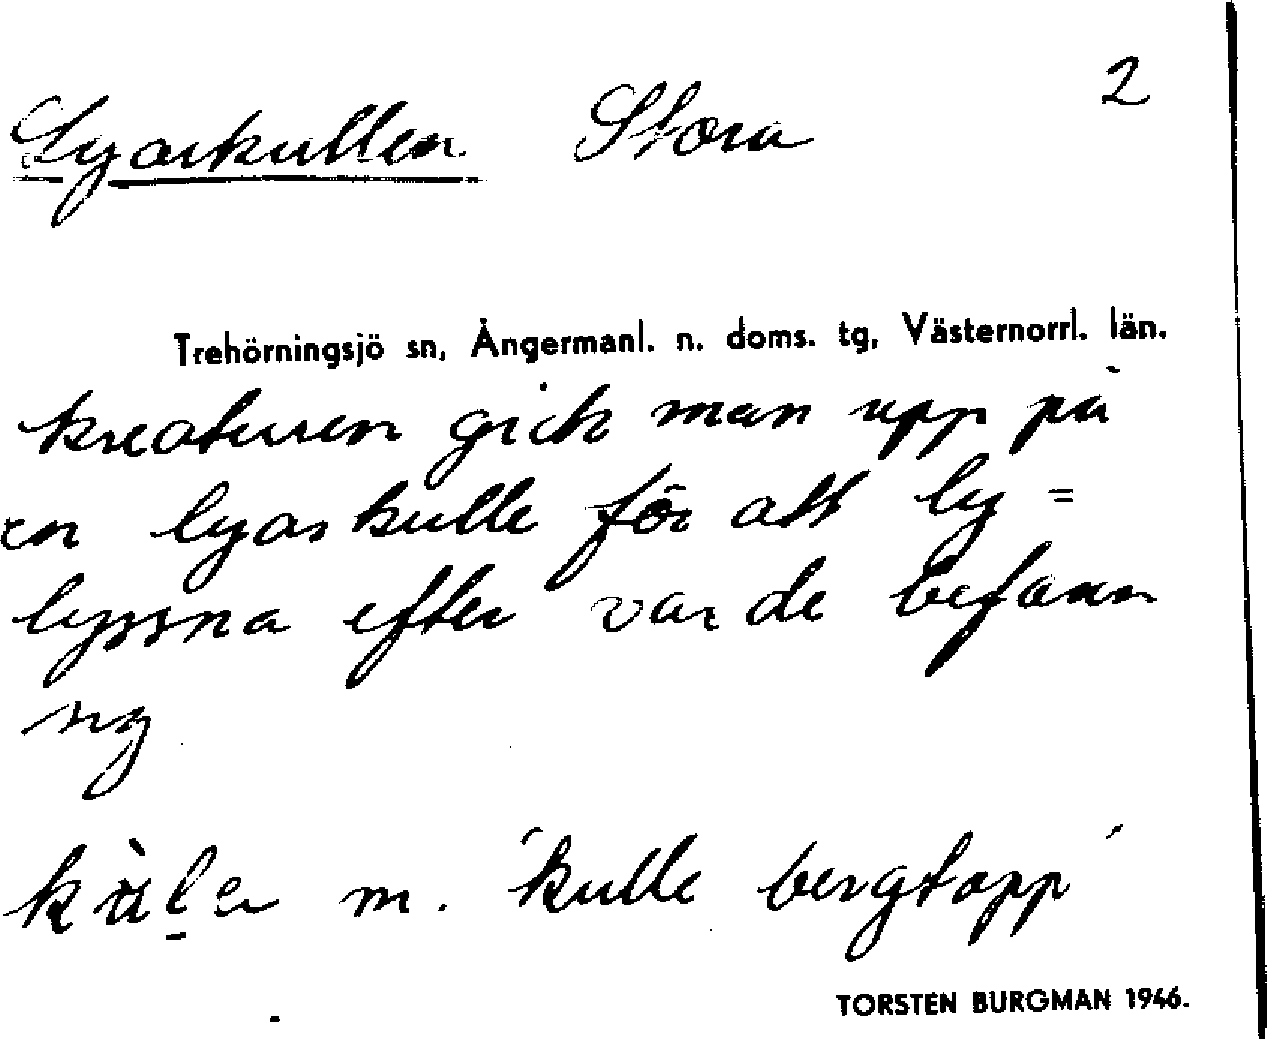 Lyarkullen Stora 2
Trehörningsjö sn, Ångermanl. n. doms. tg, Västernorrl. län.
kreaturen gick man upp på
en lyarkulle för att ly =
lyssna efter var de befann
sig
m. 'kulle bergtopp'
TORSTEN BURGMAN 1946.